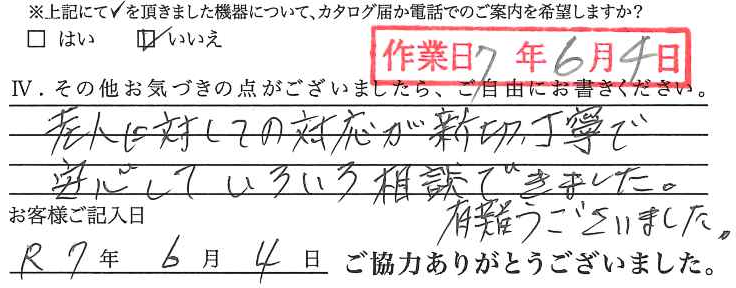 ※上記にて✓を頂きました機器について、カタログ届か電話でのご案内を希望しますか？
□ はい ☑ いいえ
作業日7年6月4日
Ⅳ．その他お気づきの点がございましたら、ご自由にお書きください。
老人に対しての対応が新切丁寧で
安心していろいろ相談できました。
有難うございました。
お客様ご記入日
R7年 6月 4日 ご協力ありがとうございました。